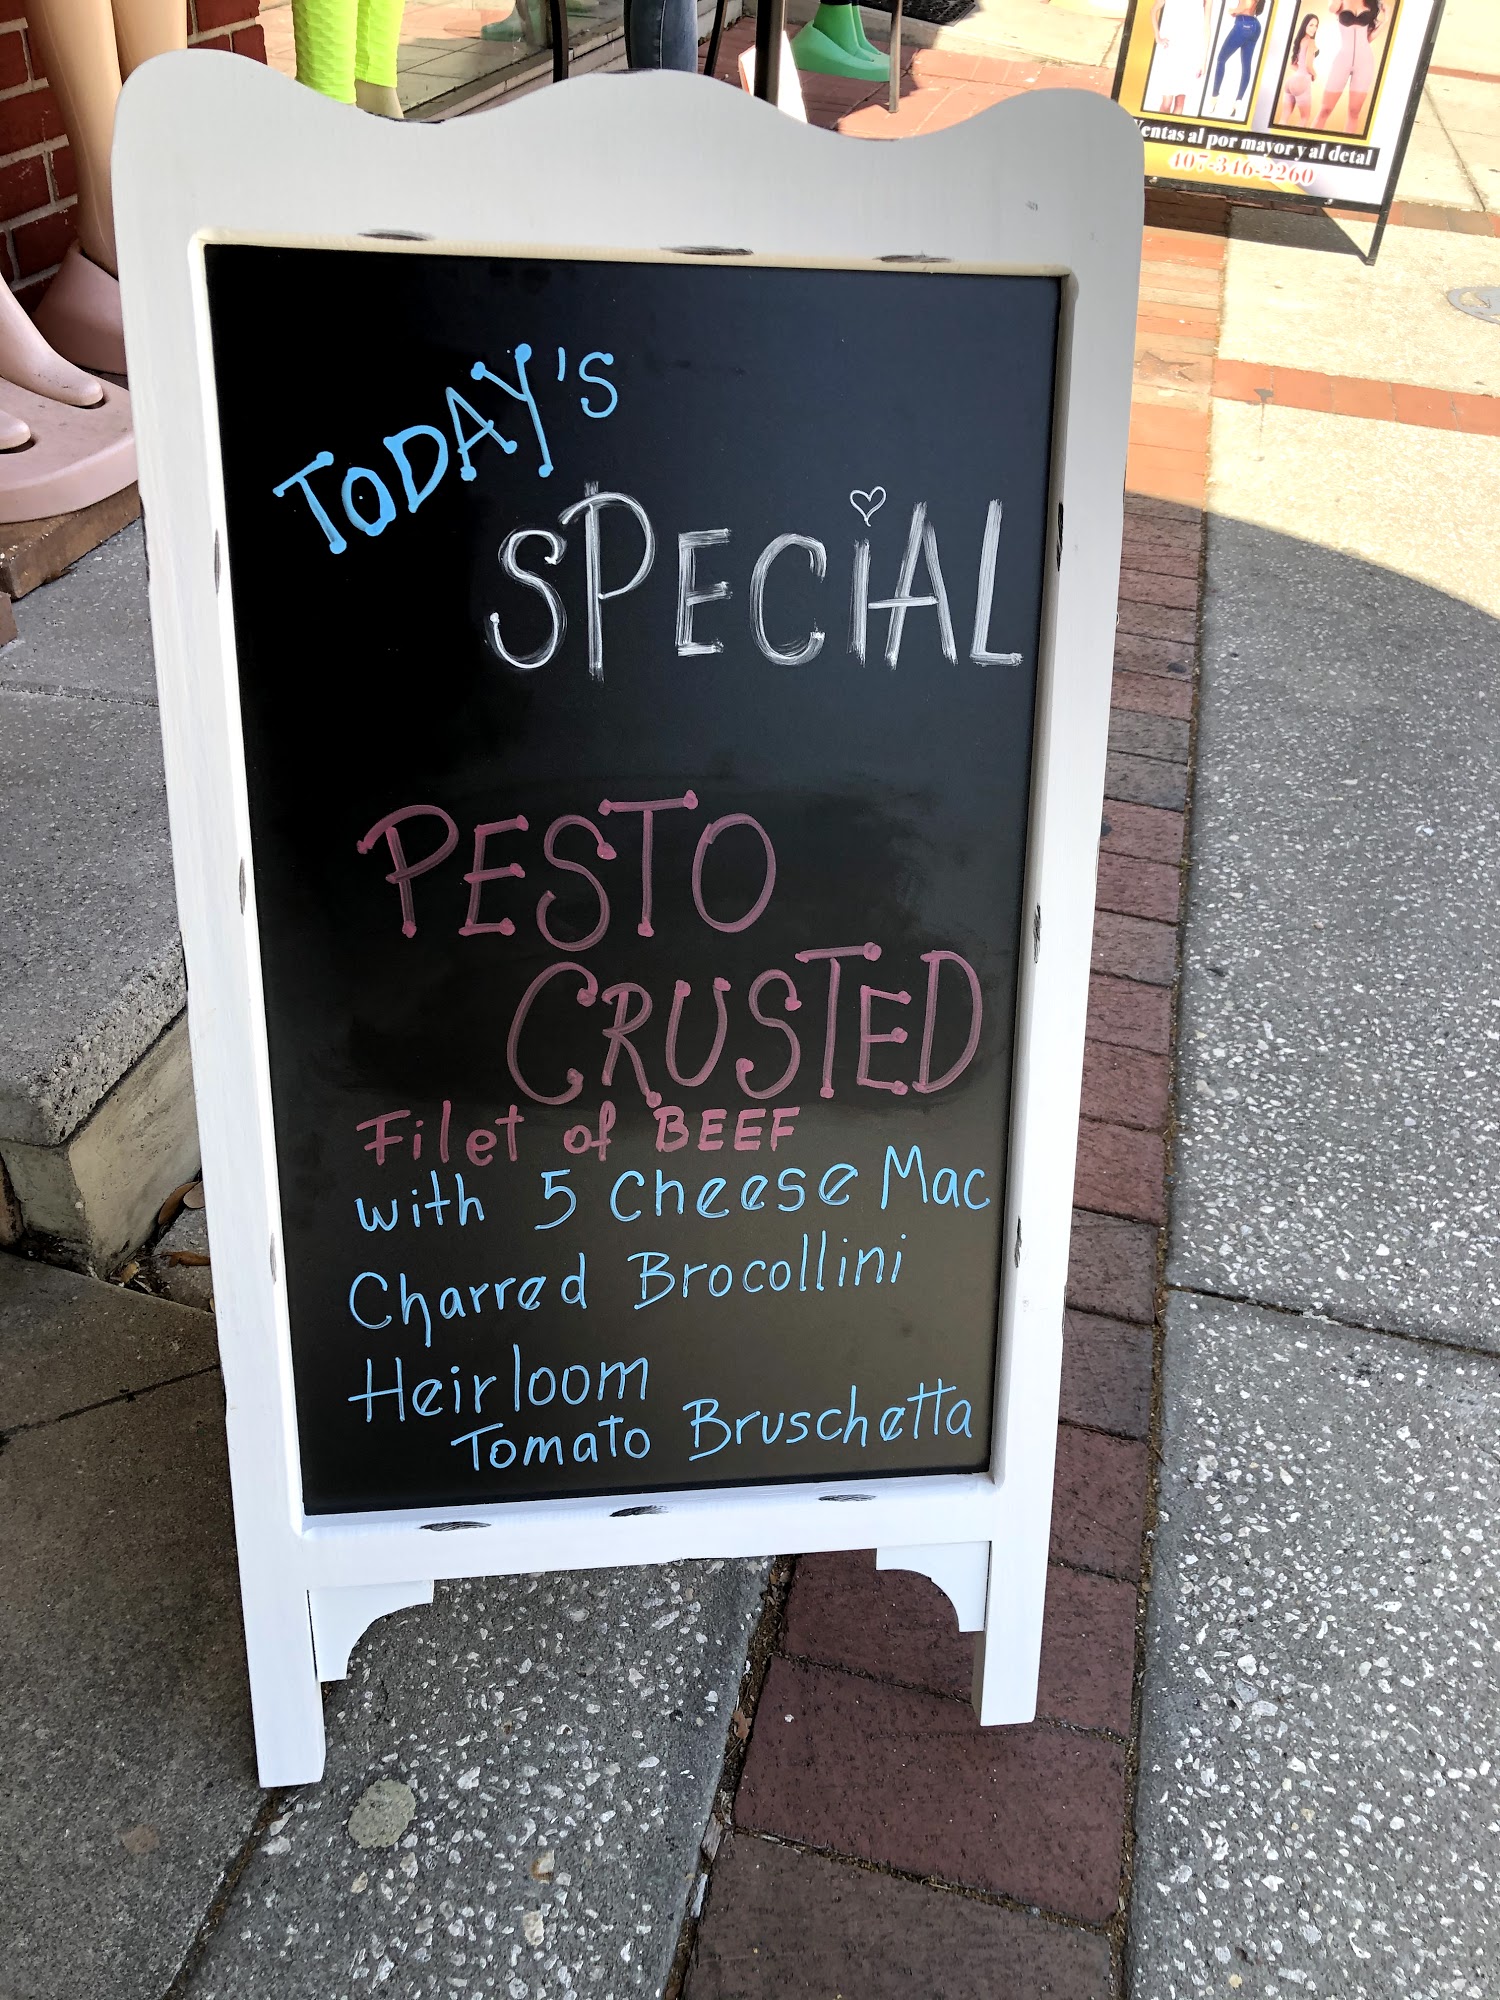 TODAY'S
SPECiAL
PESTO
CRUSTED
Filet of BEEF
with 5 Cheese Mac
Charred Brocollini
Heirloom
Tomato Bruschetta
Ventas al por mayor y al detal
407-346-2260